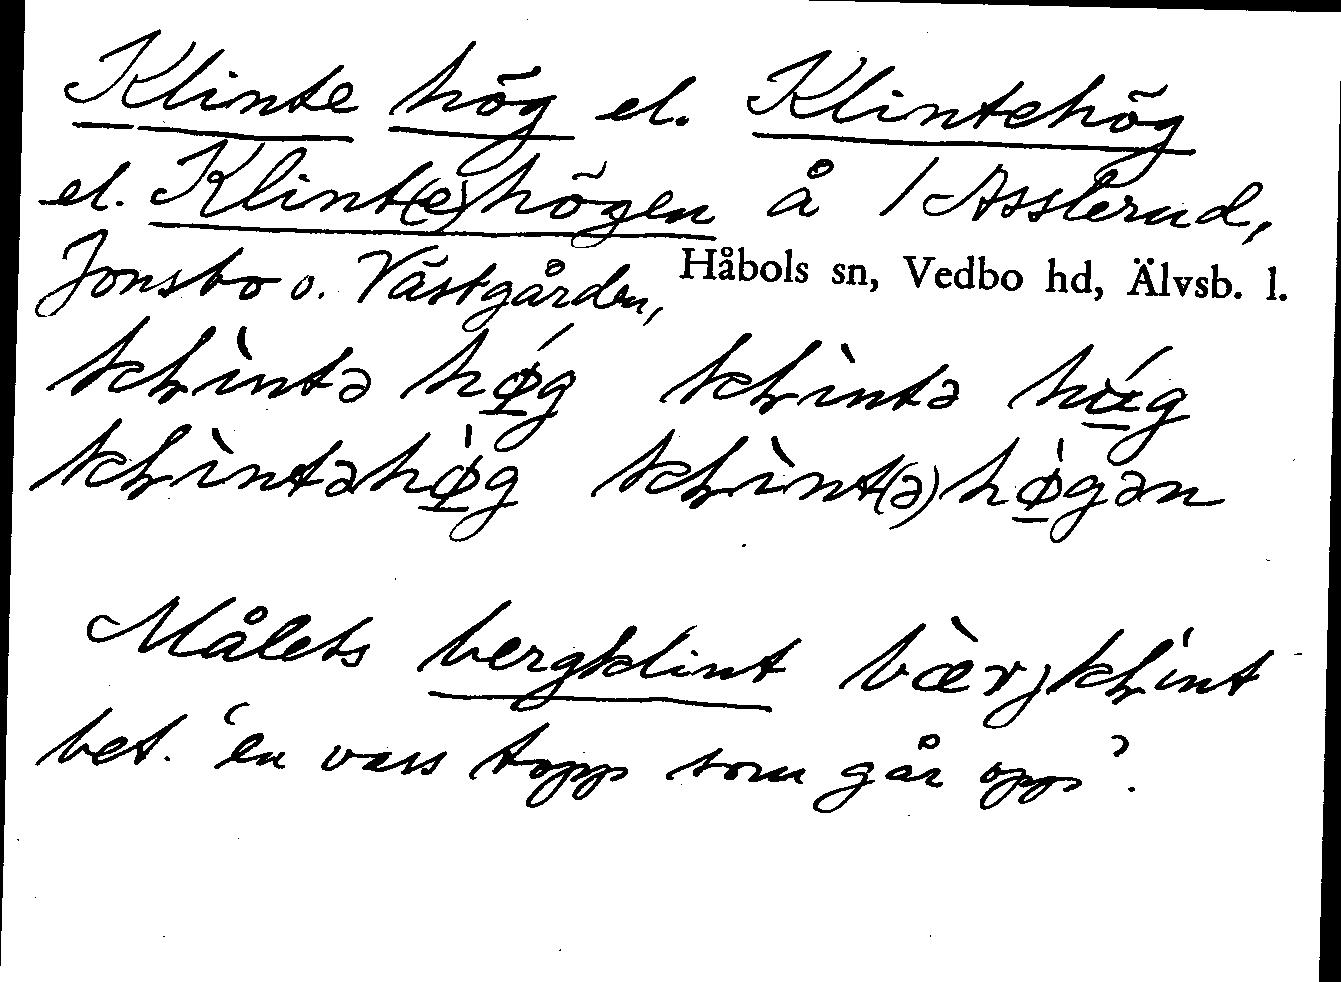 Klinte hög el. Klintehög
el. Klint(e)högen å / Asslerud,
Jonsbo o. Västgården, Håbols sn, Vedbo hd, Älvsb. l.
kɽìntə hǿg kɽìntə húg
kɽìntəhø̀g kɽìnt(ə)hø̀gən
Målets bergklint bæ̀rjkɽint
bet. 'en vass topp som går opp'.